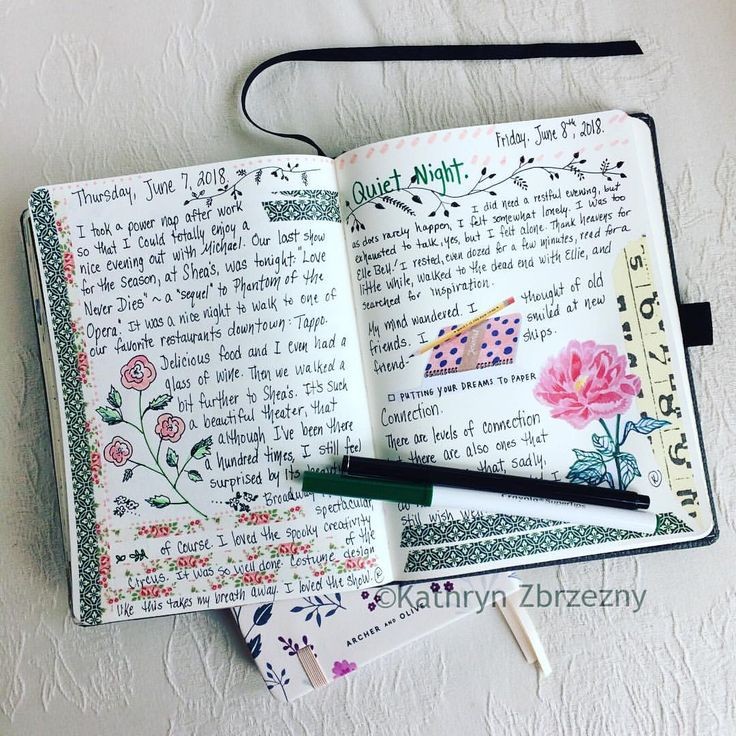 Thursday, June 7, 2018.
I took a power nap after work
so that I could totally enjoy a
nice evening out with Michael. Our last show
for the season, at Shea's, was tonight: "Love
Never Dies" ~ a "sequel" to Phantom of the
Opera. It was a nice night to walk to one of
our favorite restaurants downtown: Tappo.
Delicious food and I even had a
glass of wine. Then we walked a
bit further to Shea's. It's such
a beautiful theater, that
although I've been there
a hundred times, I still feel
surprised by its
Broadway
spectacular
of course. I loved the spooky creativity
of the
Circus. It was so well done. Costume design
like this takes my breath away. I loved the show.
Friday, June 8th, 2018.
Quiet Night.
I did need a restful evening, but
as does rarely happen, I felt somewhat lonely. I was too
exhausted to talk, yes, but I felt alone. Thank heavens for
Elle Bell! I rested, even dozed for a few minutes, read for a
little while, walked to the dead end with Ellie, and
searched for inspiration.
My mind wandered. I thought of old
friends. I smiled at new
friend- ships.
PUTTING YOUR DREAMS TO PAPER
Connection.
There are levels of connection
there are also ones that
that, sadly,
still wish
5 6 7 8 9
ARCHER AND OLIVE
©Kathryn Zbrzezny